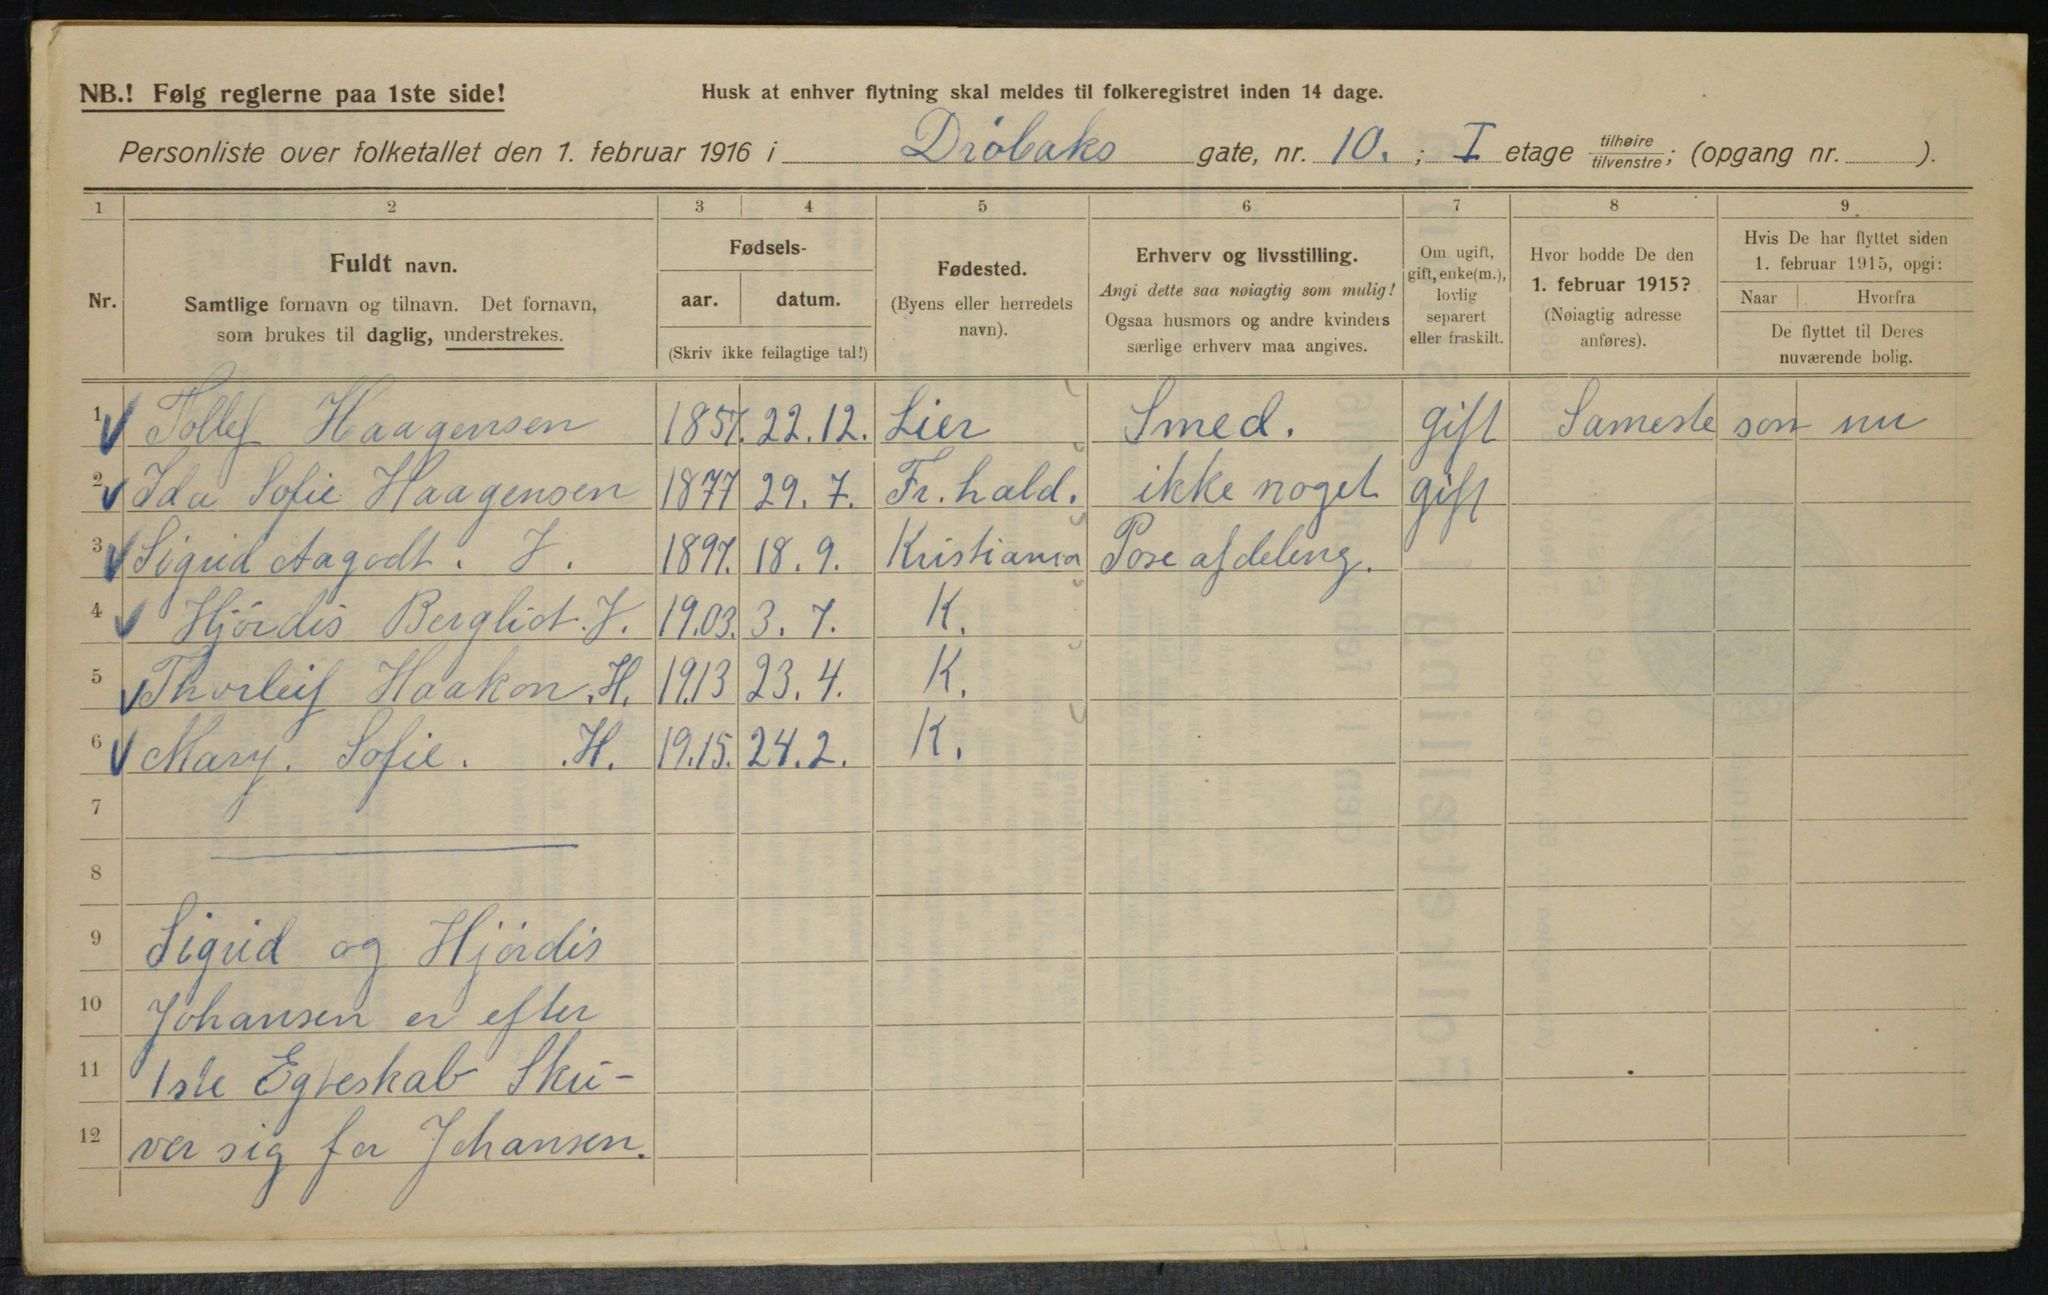 NB.! Følg reglerne paa 1ste side!
Husk at enhver flytning skal meldes til folkeregistret inden 14 dage.
Personliste over folketallet den 1. februar 1916 i Drøbaks gate, nr. 10. ; I etage tilhøire/tilvenstre; (opgang nr. ).
1 2 3 4 5 6 7 8 9
Nr.
Fuldt navn.
Samtlige fornavn og tilnavn. Det fornavn,
som brukes til daglig, understrekes.
Fødsels-
aar. datum.
(Skriv ikke feilagtige tal!)
Fødested.
(Byens eller herredets
navn).
Erhverv og livsstilling.
Angi dette saa nøiagtig som mulig!
Ogsaa husmors og andre kvinders
særlige erhverv maa angives.
Om ugift,
gift, enke(m.),
lovlig
separert
eller fraskilt.
Hvor bodde De den
1. februar 1915?
(Nøiagtig adresse
anføres).
Hvis De har flyttet siden
1. februar 1915, opgi:
Naar Hvorfra
De flyttet til Deres
nuværende bolig.
1 Tollef Haagensen 1857. 22.12. Lier Smed. gift Sameste som nu
2 Ida Sofie Haagensen 1877 29.7. Fr. hald. ikke noget gift
3 Sigrid Aagodt. J. 1897. 18.9. Kristiania Pose afdeling.
4 Hjørdis Bergliot. J. 19.03. 3.7. K.
5 Thorleif Haakon .H. 19.13 23.4. K.
6 Mary. Sofie. .H. 19.15. 24.2. K.
7
8
9 Sigrid og Hjørdis
10 Johansen er efter
11 1ste Egteskab Sku-
12 ver sig for Johansen.